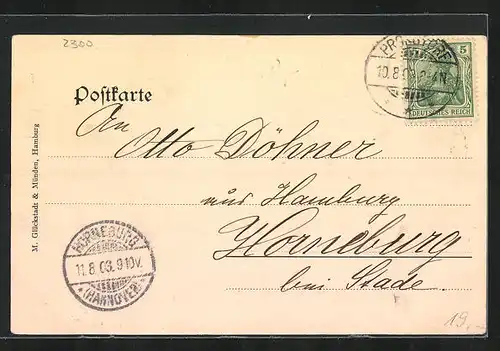 2300
5
DEUTSCHES REICH
10.8.03
Postkarte
An
Otto Döhner
Hamburg
Horneburg
bei Stade.
M. Glückstadt & Münden, Hamburg
HORNEBURG
11.8.03. 9-10V.
(HANNOVER)
19.-